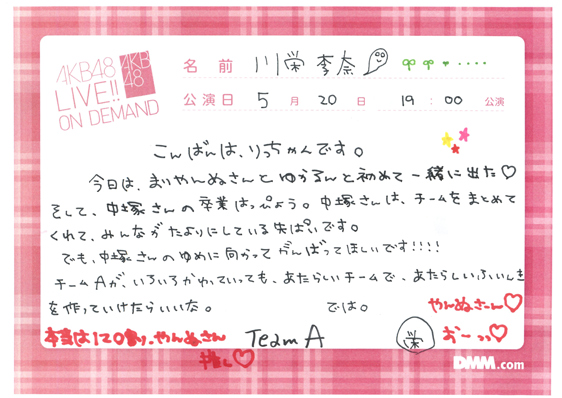 AKB48
LIVE!!
ON DEMAND
AKB
48
名前 川栄 李奈
公演日 5月 20日 19:00 公演
こんばんは、りっちゃんです。
今日は、まりやんぬさんとゆかるんと初めて一緒に出た♡
そして、中塚さんの卒業はっぴょう。中塚さんは、チームをまとめて
くれて、みんながたよりにしている先ぱいです。
でも、中塚さんのゆめに向かってがんばってほしいです!!!!
チームAが、いろいろかわっていっても、あたらしいチームで、あたらしいふいんき
を作っていけたらいいな。 では。
やんぬさーん♡
おーっっ♡
本業は120割り、やんぬさん
推し♡
Team A
栄
DMM.com